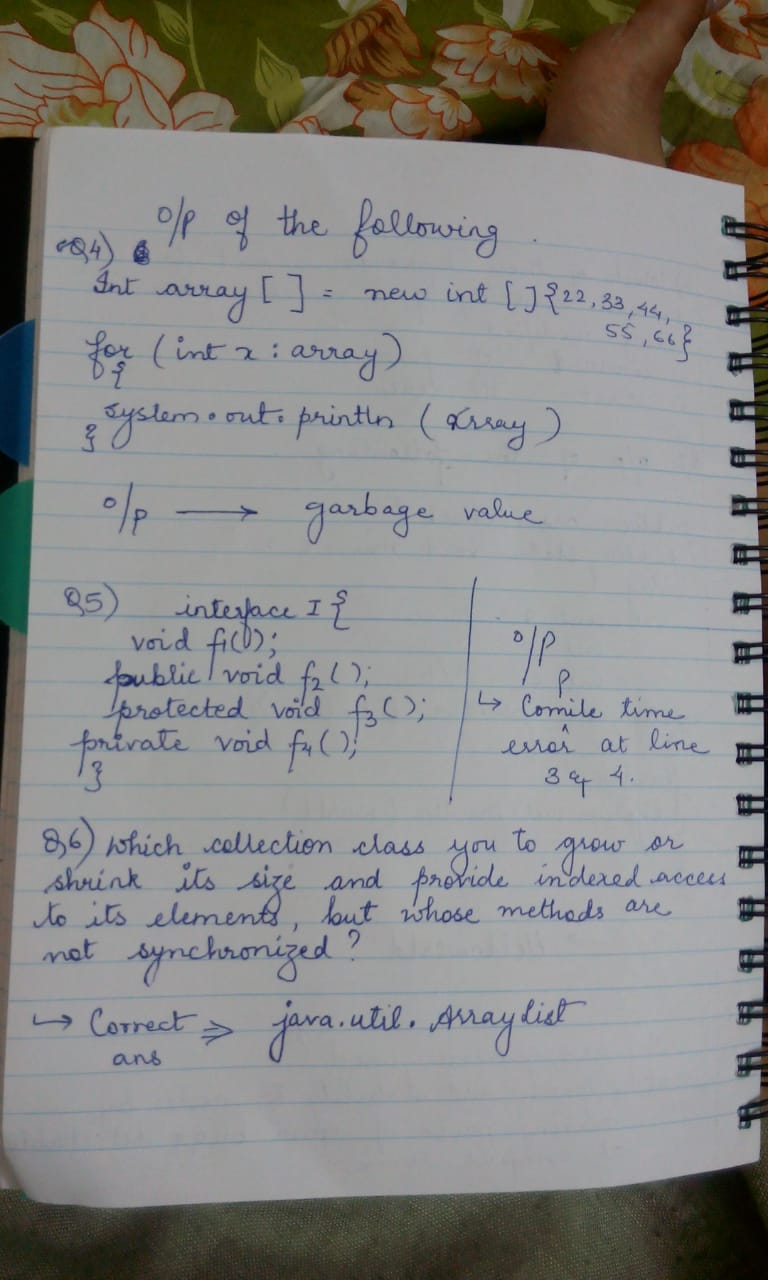 o/p of the following.
Q4)
Int array [ ] = new int [ ]{22,33,44,
55,66}
for (int x : array)
{
System.out.println (array)
}
o/p → garbage value
Q5) interface I {
void f1();
public void f2();
protected void f3();
private void f4();
}
o/p
↳ Compile time
error at line
3 & 4.
Q6) Which collection class you to grow or
shrink its size and provide indexed access
to its elements, but whose methods are
not synchronized?
↳ Correct ⇒ java.util.Arraylist
ans